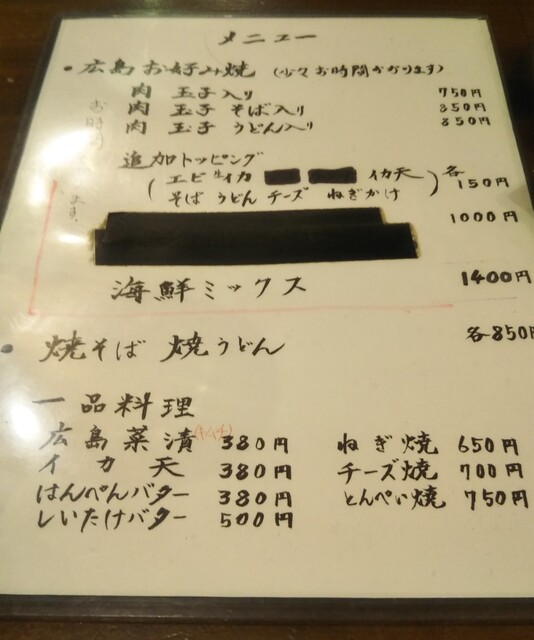 メニュー
・広島お好み焼 (少々お時間かかります)
肉 玉子入り 750円
肉 玉子 そば入り 850円
肉 玉子 うどん入り 850円
追加トッピング
(エビ 生イカ イカ天 そば うどん チーズ ねぎかけ) 各150円
1000円
海鮮ミックス 1400円
・焼そば 焼うどん 各850円
一品料理
広島菜漬 380円 ねぎ焼 650円
イカ天 380円 チーズ焼 700円
はんぺんバター 380円 とんぺい焼 750円
しいたけバター 500円